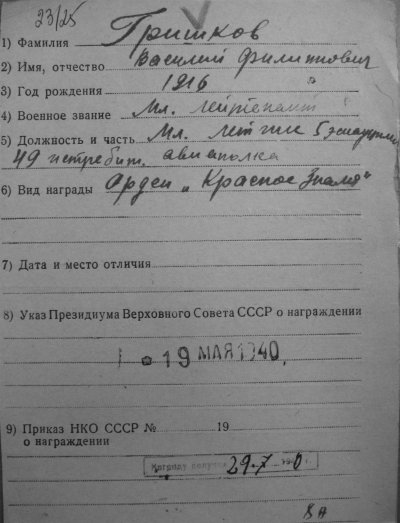 23/25
1) Фамилия Гришков
2) Имя, отчество Василий Филиппович
3) Год рождения 1916
4) Военное звание Мл. лейтенант
5) Должность и часть Мл. летчик 5 эскадрильи
49 истребит. авиаполка
6) Вид награды Орден „Красное Знамя"
7) Дата и место отличия
8) Указ Президиума Верховного Совета СССР о награждении
19 МАЯ 1940
9) Приказ НКО СССР № 19 г.
о награждении
Награду получил 29.7